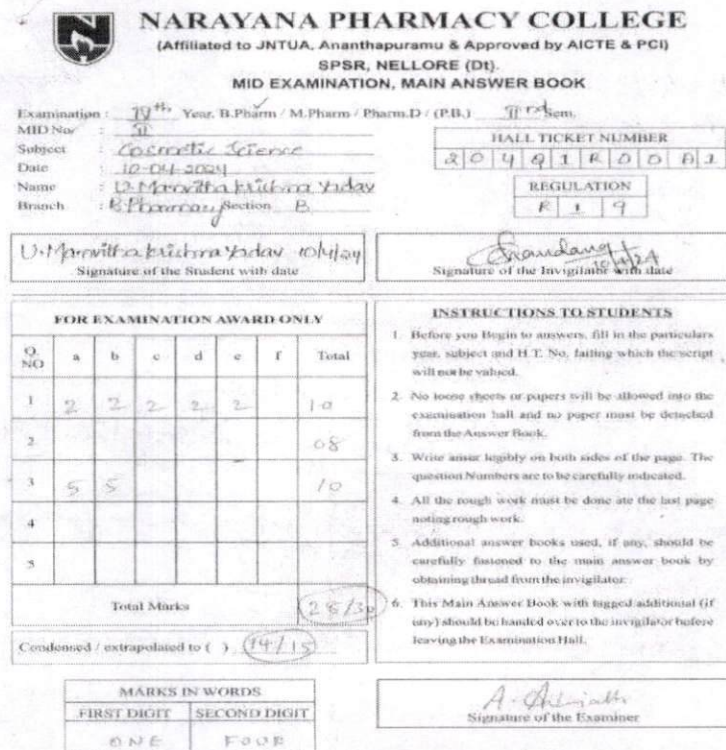 NARAYANA PHARMACY COLLEGE
(Affiliated to JNTUA, Ananthapuramu & Approved by AICTE & PCI)
SPSR, NELLORE (Dt).
MID EXAMINATION, MAIN ANSWER BOOK
Examination : IVth Year. B.Pharm / M.Pharm / Pharm.D / (P.B.) II nd Sem.
MID No : II
Subject : Cosmetic Science
Date : 10-04-2024
Name : U. Manvitha krishna Yadav
Branch : B.Pharmacy Section B
HALL TICKET NUMBER
2 0 4 Q 1 R 0 0 A 1
REGULATION
R 1 9
U. Manvitha krishna Yadav 10/4/24
Signature of the Student with date
10/4/24
Signature of the Invigilator with date
FOR EXAMINATION AWARD ONLY
Q. NO a b c d e f Total
1 2 2 2 2 2 10
2 08
3 5 5 10
4
5
Total Marks 28/30
Condensed / extrapolated to ( ) 14/15
INSTRUCTIONS TO STUDENTS
1. Before you Begin to answers, fill in the particulars
year, subject and H.T. No, failing which the script
will not be valued.
2. No loose sheets or papers will be allowed into the
examination hall and no paper must be detached
from the Answer Book.
3. Write anser legibly on both sides of the page. The
question Numbers are to be carefully indicated.
4. All the rough work must be done ate the last page
noting rough work.
5. Additional answer books used, if any, should be
carefully fastened to the main answer book by
obtaining thread from the invigilator.
6. This Main Answer Book with tagged additional (if
any) should be handed over to the invigilator before
leaving the Examination Hall.
MARKS IN WORDS
FIRST DIGIT SECOND DIGIT
ONE FOUR
Signature of the Examiner